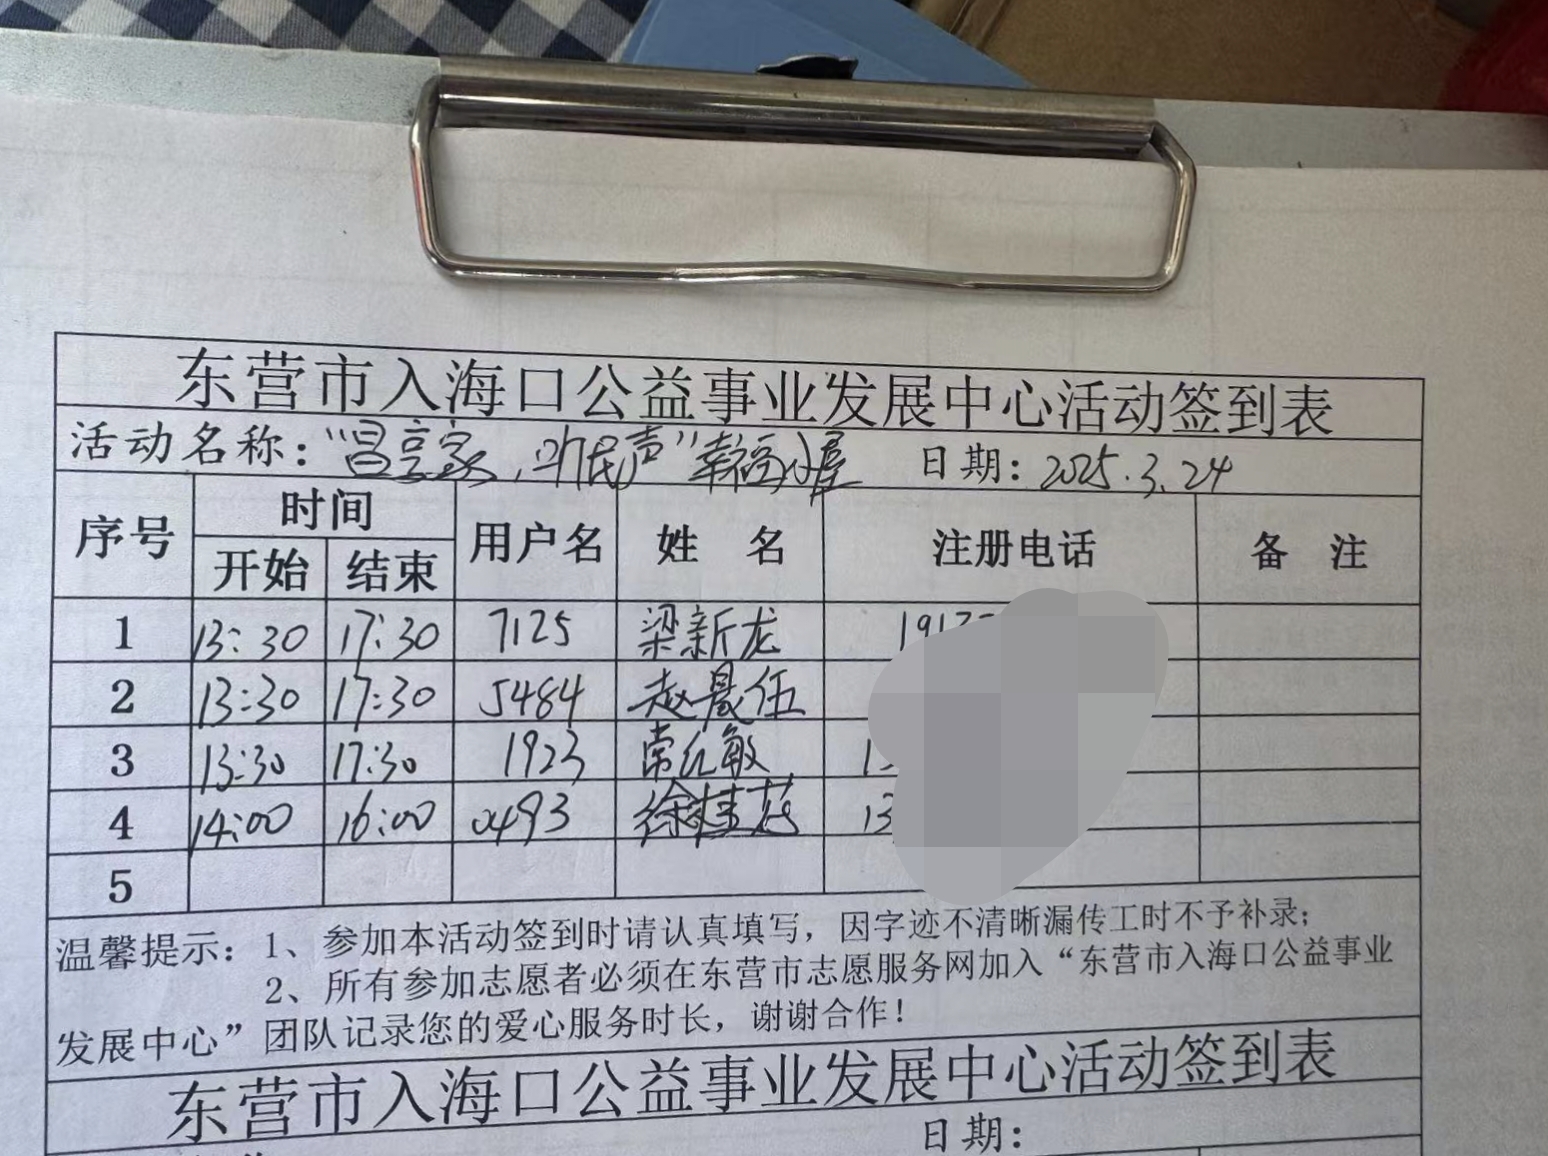 东营市入海口公益事业发展中心活动签到表
活动名称：“昌享家，听民声”幸福小屋 日期：2025.3.24
序号 时间 用户名 姓 名 注册电话 备 注
开始 结束
1 13:30 17:30 7125 梁新龙 1913
2 13:30 17:30 5484 赵晨伍
3 13:30 17:30 1923 常红敏 13
4 14:00 16:00 0493 徐桂芯 13
5
温馨提示：1、参加本活动签到时请认真填写，因字迹不清晰漏传工时不予补录；
2、所有参加志愿者必须在东营市志愿服务网加入“东营市入海口公益事业
发展中心”团队记录您的爱心服务时长，谢谢合作！
东营市入海口公益事业发展中心活动签到表
日期：